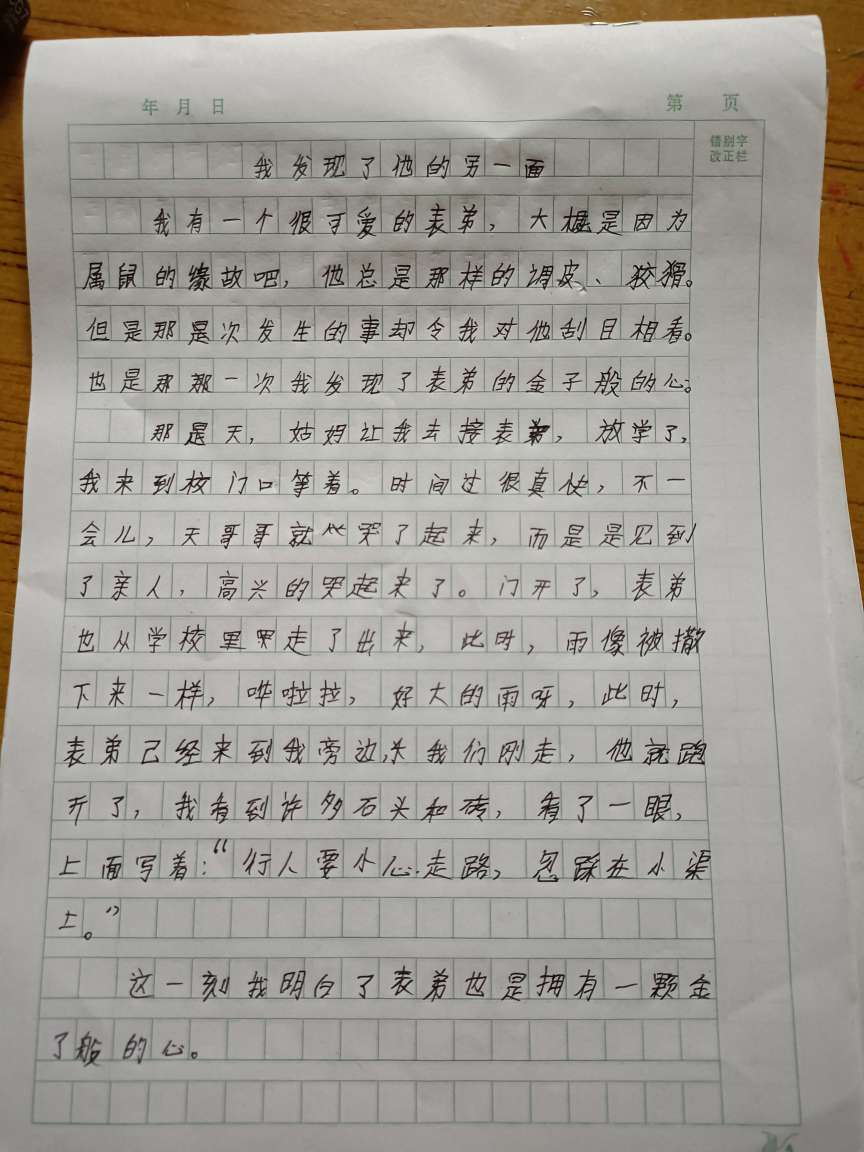 年 月 日
第 页
错别字
改正栏
我发现了他的另一面
我有一个很可爱的表弟，大概是因为
属鼠的缘故吧，他总是那样的调皮、狡猾。
但是那是次发生的事却令我对他刮目相看。
也是那那一次我发现了表弟的金子般的心。
那是天，姑妈让我去接表弟，放学了，
我来到校门口等着。时间过很真快，不一
会儿，天哥哥就哭了起来，而是是见到
了亲人，高兴的哭起来了。门开了，表弟
也从学校里哭走了出来，此时，雨像被撒
下来一样，哗啦拉，好大的雨呀，此时，
表弟已经来到我旁边，我们刚走，他就跑
开了，我看到许多石头和砖，看了一眼，
上面写着：“行人要小心走路，忽踩在小渠
上。”
这一刻我明白了表弟也是拥有一颗金
了般的心。